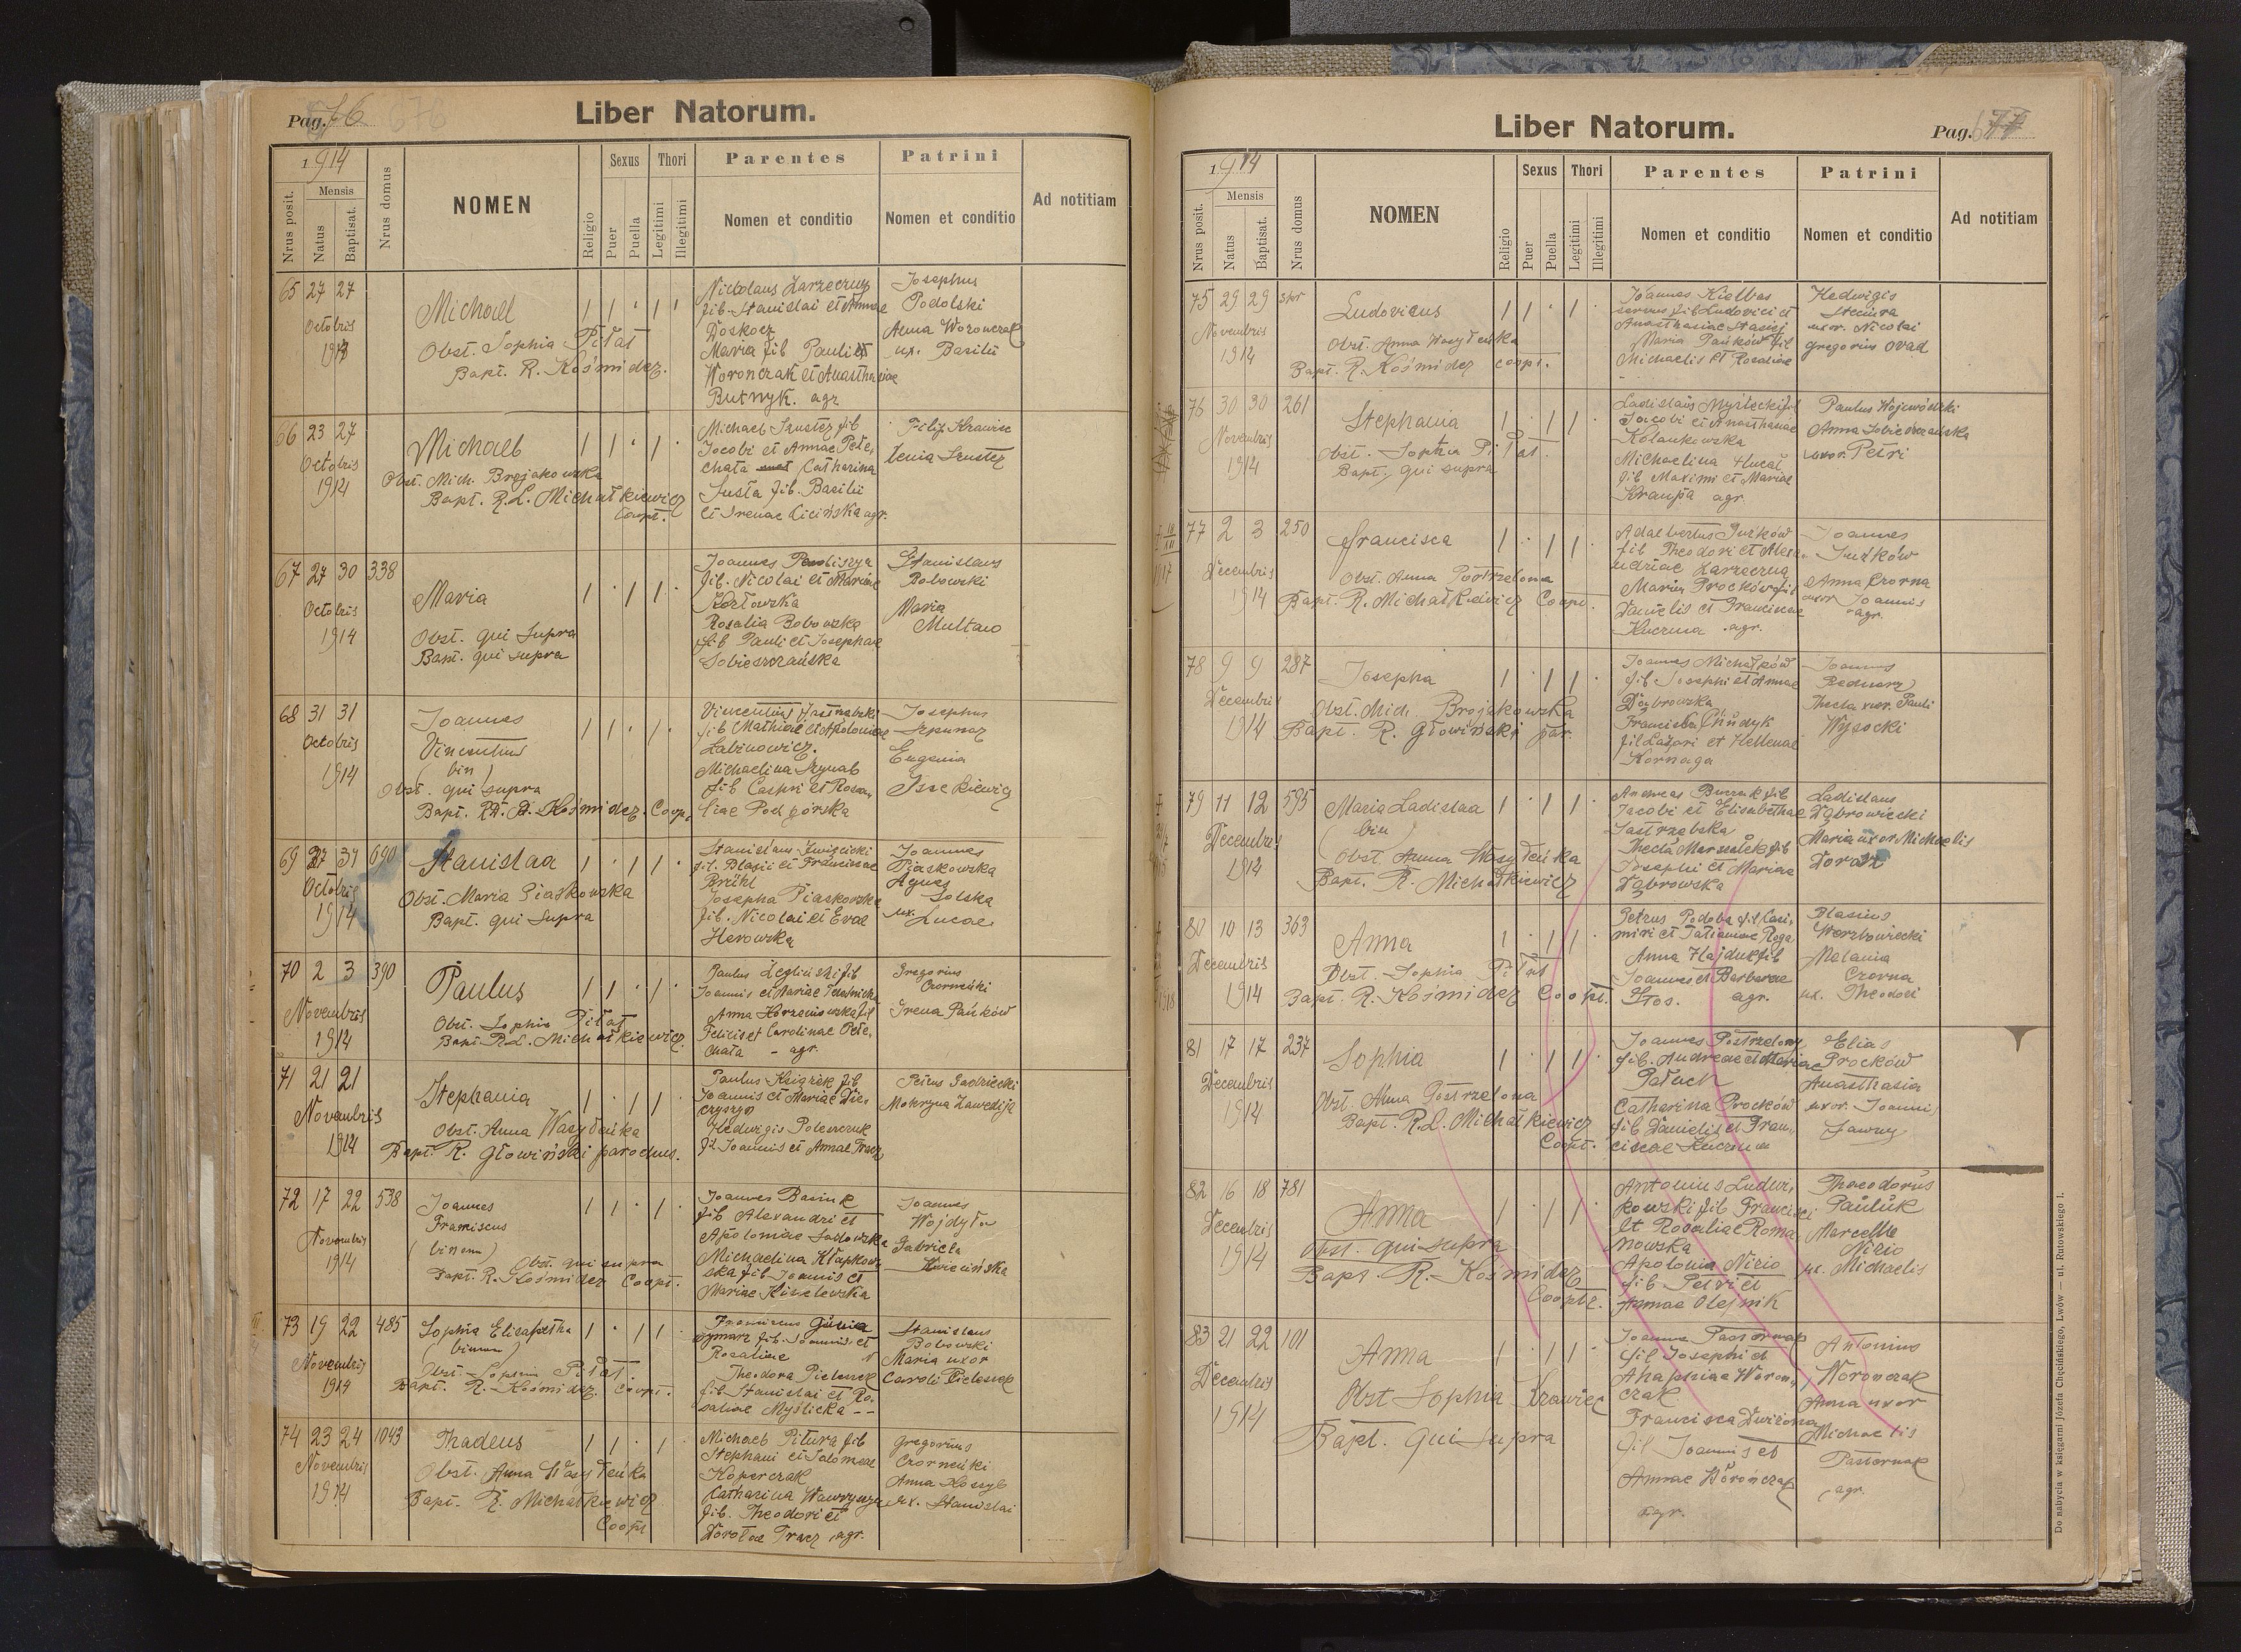 Pag. 676
Liber Natorum.
1914
Nrus posit.
Mensis
Natus
Baptisat.
Nrus domus
NOMEN
Religio
Sexus
Puer
Puella
Thori
Legitimi
Illegitimi
Parentes
Nomen et conditio
Patrini
Nomen et conditio
Ad notitiam
65 27 27
Octobris
Michael
Obst. Sophia Piłat
Bapt. R. Kośmider.
Nicolaus Zarzeczny
fil. Stanislai et Annae
Doskocz
Maria fil Pauli et
Woronczak et Anasthasiae
Butnyk. agr
Josephus
Podolski
Anna Woronczak
ux. Basilii
66 23 27
Octobris
1914
Michael
Obst. Mich. Brojakowska
Bapt. R.L. Michałkiewicz
Coopt.
Michael Szuster fil
Jacobi et Annae Pełe-
chata Catharina
Susła fil. Basilii
et Irenae Cicińska agr.
Filip Krawiec
Xenia Szuster
67 27 30 338
Octobris
1914
Maria
Obst. qui supra
Bapt. qui supra
fil. Nicolai et Mariae
Kozłowska
Rosalia Bobowska
fil Pauli et Josephae
Sobieszczańska
Stanislaus
Bobowski
Maria
68 31 31
Octobris
1914
Joannes
Vincentius
(bin)
Obst. qui supra
Bapt. Kośmider. Coop.
Vincentius Jastrzębski
fil Mathiae et Apoloniae
Labinowicz.
Michaelina
fil Caspri et Rosa-
liae Podgórska
Josephus
Szpunar
Eugenia
69 27 31 690
Octobris
1914
Stanislaa
Obst. Maria Piaskowska
Bapt. qui supra
Stanislaus
fil. Blasii et Franciscae
Brühl
Josepha Piaskowska
fil. Nicolai et Evae
Herowska
Joannes
Piaskowska
Agnes
Solska
ux. Lucae
70 2 3 390
Novembris
1914
Paulus
Obst. Sophia Piłat
Bapt. R.L. Michałkiewicz.
Paulus fil
Joannis et Mariae
Anna Korzeniowska fil
Felicis et Carolinae Pełe-
chata - agr.
Gregorius
Czorneńki
Irena Pańków
71 21 21
Novembris
1914
Stephania
Obst. Anna Wasyłeńka
Bapt. R. Głowiński parochus.
Paulus Książek fil
Joannis et Mariae Die-
czyszyn
Hedwigis Poleszczuk
fil Joannis et Annae Tracz
Petrus Sadziecki
Mokryna Zawedija
72 17 22 538
Novembris
1914
Joannes
Franciscus
(binom)
Obst. qui supra
Bapt. R. Kośmider Coopt.
Joannes Basiuk
fil Alexandri et
Apoloniae Sadowska
Michaelina Kłapkow-
ska fil Joannis et
Mariae Kisielewska
Joannes
Wojdyła
Gabriela
Kwiecińska
73 19 22 485
Novembris
1914
Sophia Elisabetha
(binom)
Obst. Sophia Piłat.
Bapt. R. Kośmider. Coopt.
Franciscus
fil. Joannis et
Rosaliae
Theodora Pieleszek
fil Stanislai et Ro-
saliae Myślicka
Stanislaus
Bobowski
Maria uxor
Caroli Pieleszek
74 23 24 1043
Novembris
1914
Thadeus
Obst. Anna Wasyłeńka
Bapt. R. Michałkiewicz
Coopt
Michael Pitura fil
Stephani et Salomeae
Koperczak
Catharina Wawryszyn
fil. Theodori et
Dorotae Tracz agr.
Gregorius
Czorneńki
Anna Kossyl
ux. Stanislai
Liber Natorum.
Pag. 677
1914
Nrus posit.
Mensis
Natus
Baptisat.
Nrus domus
NOMEN
Religio
Sexus
Puer
Puella
Thori
Legitimi
Illegitimi
Parentes
Nomen et conditio
Patrini
Nomen et conditio
Ad notitiam
75 29 29
Novembris
1914
Ludovicus
Obst. Anna Wasyłeńka
Bapt. R. Kośmider coopt.
Joannes Kiełbas
servus fil Ludovici et
Anasthasiae Stasiej
Maria Pańków fil
Michaelis et Rosaliae
Hedwigis
uxor. Nicolai
Gregorius Owad
76 30 30 261
Novembris
1914
Stephania
Obst. Sophia Piłat.
Bapt. qui supra
Ladislaus Myślecki fil
Jacobi et Anasthasiae
Kolankowska
Michaelina Hucał
fil Maximi et Mariae
Kraupa agr.
Paulus Wojewódzki
Anna Sobieszczańska
uxor. Petri
77 2 3 250
Decembris
1914
Francisca
Obst. Anna Postrzelona
Bapt. R. Michałkiewicz Coopt.
Adalbertus Jurków
fil Theodori et Alexa-
ndriae Zarzeczna
Maria Proćków fil
Danielis et Franciscae
Kuczma agr.
Joannes
Jurków
Anna Czorna
uxor Joannis
agr.
78 9 9 287
Decembris
1914
Josepha
Obst. Mich. Brojakowska
Bapt. R. Głowiński par.
Joannes Michałków
fil Josephi et Annae
Dąbrowska
Francisca Chudyk
fil Lazari et Hellenae
Kornaga
Joannes
Bednarz
Thecla uxor. Pauli
Wysocki
79 11 12 595
Decembris
1914
Maria Ladislaa
(bin)
Obst. Anna Wasyłeńka
Bapt. R. Michałkiewicz
Andreas Burak fil
Jacobi et Elisabethae
Jastrzębska
Thecla Marszałek fil
Josephi et Mariae
Dąbrowska
Ladislaus
Dąbrowiecki
Maria uxor Michaelis
80 10 13 363
Decembris
1914
Anna
Obst. Sophia Piłat
Bapt. R. Kośmider Coopt.
Petrus Podoba fil Casi-
miri et Tatianae Roga
Anna Hajduk fil
Joannes et Barbarae
Stos. agr.
Blasius
Werzbowiecki
Melania
Czorna
ux. Theodori
81 17 17 237
Decembris
1914
Sophia
Obst. Anna Postrzelona
Bapt. R.L. Michałkiewicz
Coopt.
Joannes Postrzelony
fil. Andreae et Mariae
Pałuch
Catharina Proćków
fil Danielis et Fran-
ciscae Kuczma
Elias
Proćków
Anasthasia
uxor. Joannis
Jawny
82 16 18 781
Decembris
1914
Anna
Obst. qui supra
Bapt. R. Kośmider
Cooptr.
Antonius Ludwi-
kowski fil Francisci
et Rosaliae Roma-
nowska
Apolonia Nizio
fil. Petri et
Annae Olejnik
Theodorus
Pauluk
Marcella
Nizio
ux. Michaelis
83 21 22 101
Decembris
1914
Anna
Obst Sophia Krawiec
Bapt. qui supra
Joannes Pasternak
fil Josephi et
Ahaphiae Woron-
czak
Francisca Dwirożna
fil Joannis et
Annae Woronczak
agr.
Antonius
Woronczak
Anna uxor
Michaelis
Pasternak
agr.
Do nabycia w księgarni Józefa Chęcińskiego, Lwów ul. Rutowskiego 1.